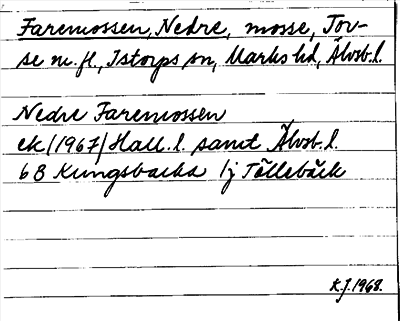 Faremossen, Nedre, mosse, Tor-
se m.fl., Istorps sn, Marks hd, Älvsb.l.
Nedre Faremossen
ek (1967) Hall. l. samt Älvsb. l.
6B Kungsbacka 1j Töllebäck
K.J. 1968.